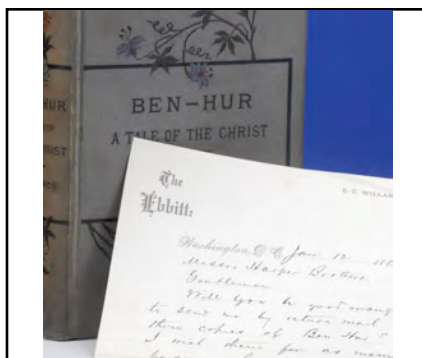 HUR
CHRIST
BEN-HUR
A TALE OF THE CHRIST
The
Ebbitt:
C. C. WILLAR
Washington, D. C. Jan. 12
Messrs Harper Brothers
Gentlemen
Will you be good enough
to send me by return mail
three copies of "Ben Hur"
I wish them for as many